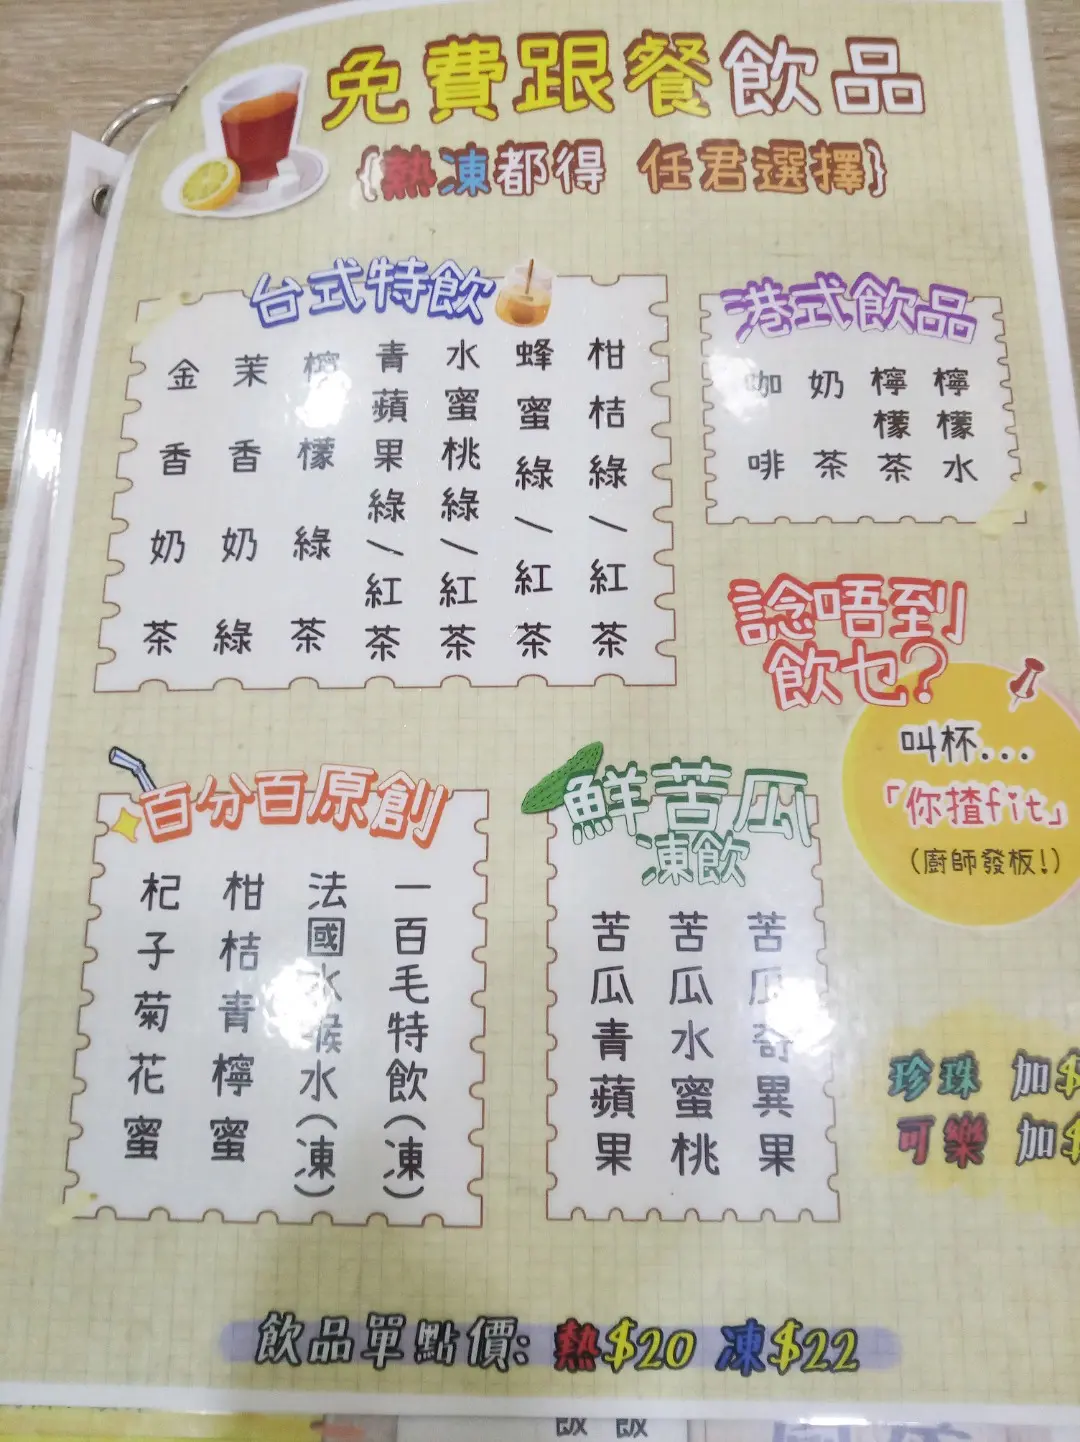 免費跟餐飲品
{熱凍都得 任君選擇}
台式特飲
柑桔綠/紅茶
蜂蜜綠/紅茶
水蜜桃綠/紅茶
青蘋果綠/紅茶
檸檬綠茶
茉香奶綠
金香奶茶
港式飲品
檸檬水
檸檬茶
奶茶
咖啡
諗唔到
飲乜?
叫杯...
「你揸fit」
(廚師發板!)
百分百原創
一百毛特飲(凍)
法國水喉水(凍)
柑桔青檸蜜
杞子菊花蜜
鮮苦瓜
凍飲
苦瓜奇異果
苦瓜水蜜桃
苦瓜青蘋果
珍珠 加$
可樂 加$
飲品單點價: 熱$20 凍$22
飯 飯